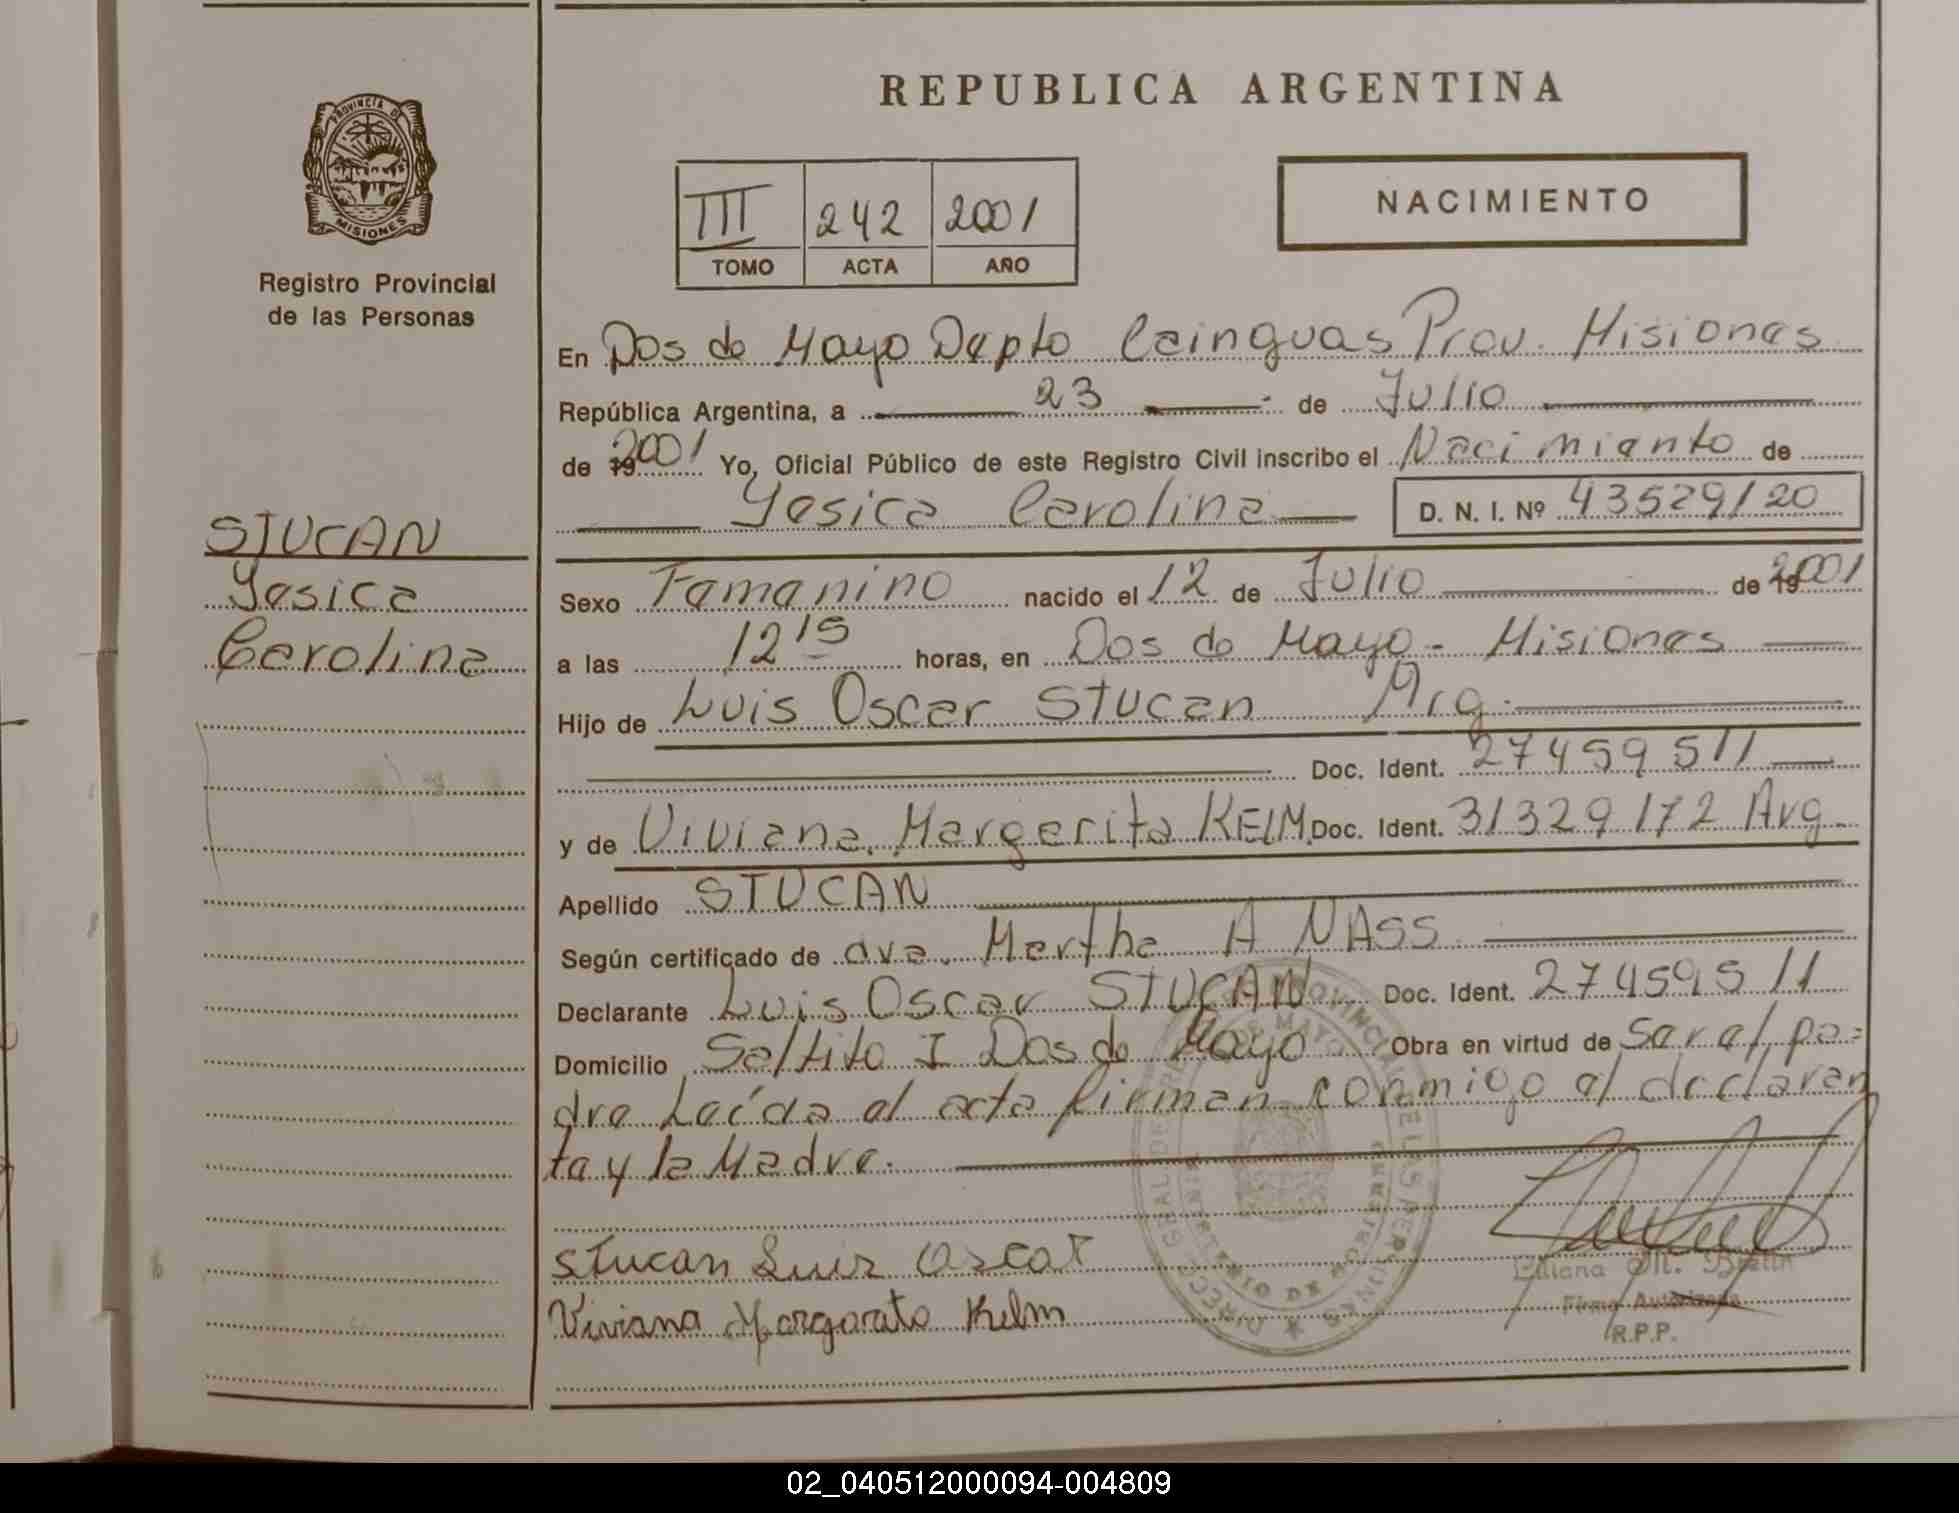 REPUBLICA ARGENTINA
PROVINCIA DE
MISIONES
Registro Provincial
de las Personas
III 242 2001
TOMO ACTA AÑO
NACIMIENTO
En Dos de Mayo Depto Cainguas Prov. Misiones
República Argentina, a 23 de Julio
de 19 2001 Yo, Oficial Público de este Registro Civil inscribo el Nacimiento de
Yesica Carolina D. N. I. Nº 43529120
STUCAN
Yesica
Carolina
Sexo Femenino nacido el 12 de Julio de 19 2001
a las 12 15 horas, en Dos de Mayo - Misiones
Hijo de Luis Oscar Stucan Arg.
Doc. Ident. 27459511
y de Viviana Margarita KELM Doc. Ident. 31329172 Arg
Apellido STUCAN
Según certificado de dra. Martha A NASS
Declarante Luis Oscar STUCAN Doc. Ident. 27459511
Domicilio Saltito I Dos de Mayo Obra en virtud de Ser el pa-
dre Leída el acta firman conmigo el declaran
te y la Madre.
Stucan Luis Oscar
Viviana Margarita Kelm
Liliana M.
Firma Autorizada
R.P.P.
02_040512000094-004809